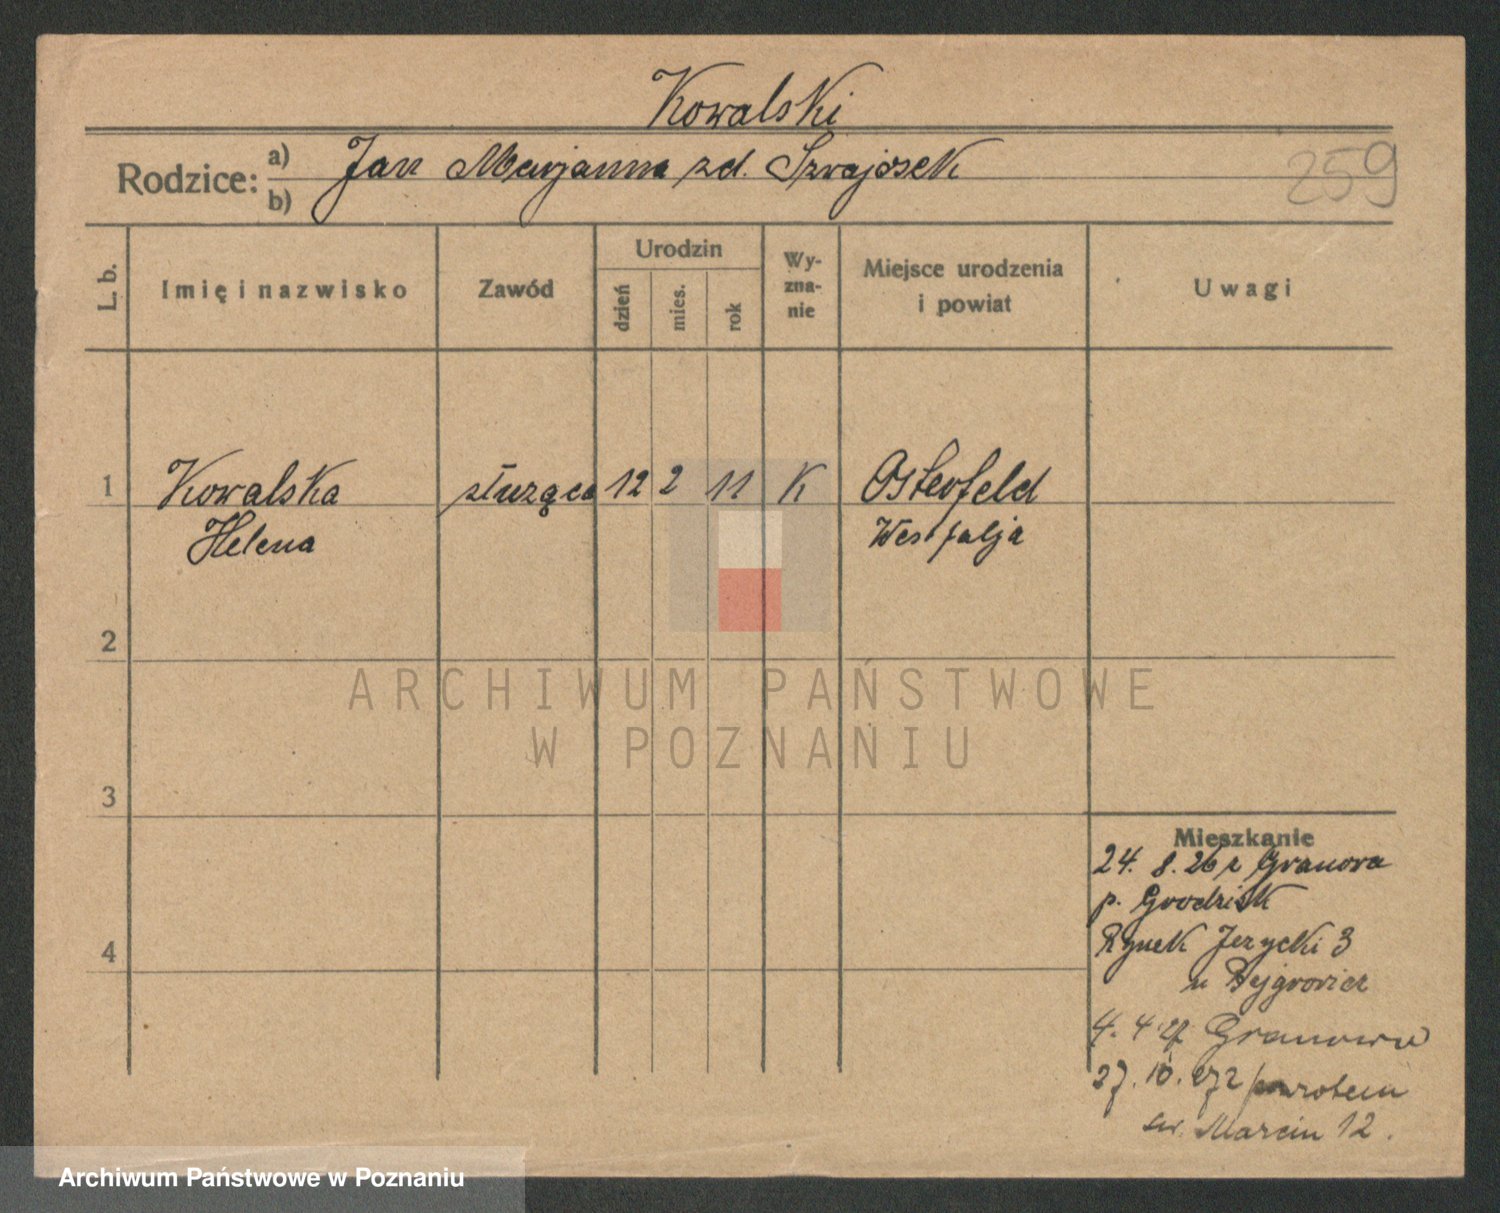 Kowalski
259
Rodzice: a) Jan Marjanna zd. Szwajosek
b)
L. b.
Imię i nazwisko
Zawód
Urodzin
dzień
mies.
rok
Wy-
zna-
nie
Miejsce urodzenia
i powiat
Uwagi
1 Kowalska służąca 12 2 11 K Osterfeld
Helena Westfalja
2
3
4
ARCHIWUM PAŃSTWOWE
W POZNANIU
Mieszkanie
24. 8. 26 z Granowa
p. Grodzisk
Rynek Jezycki 3
u
4. 4 27 Granowo
27. 10. 27 z powrotem
św. Marcin 12.
Archiwum Państwowe w Poznaniu